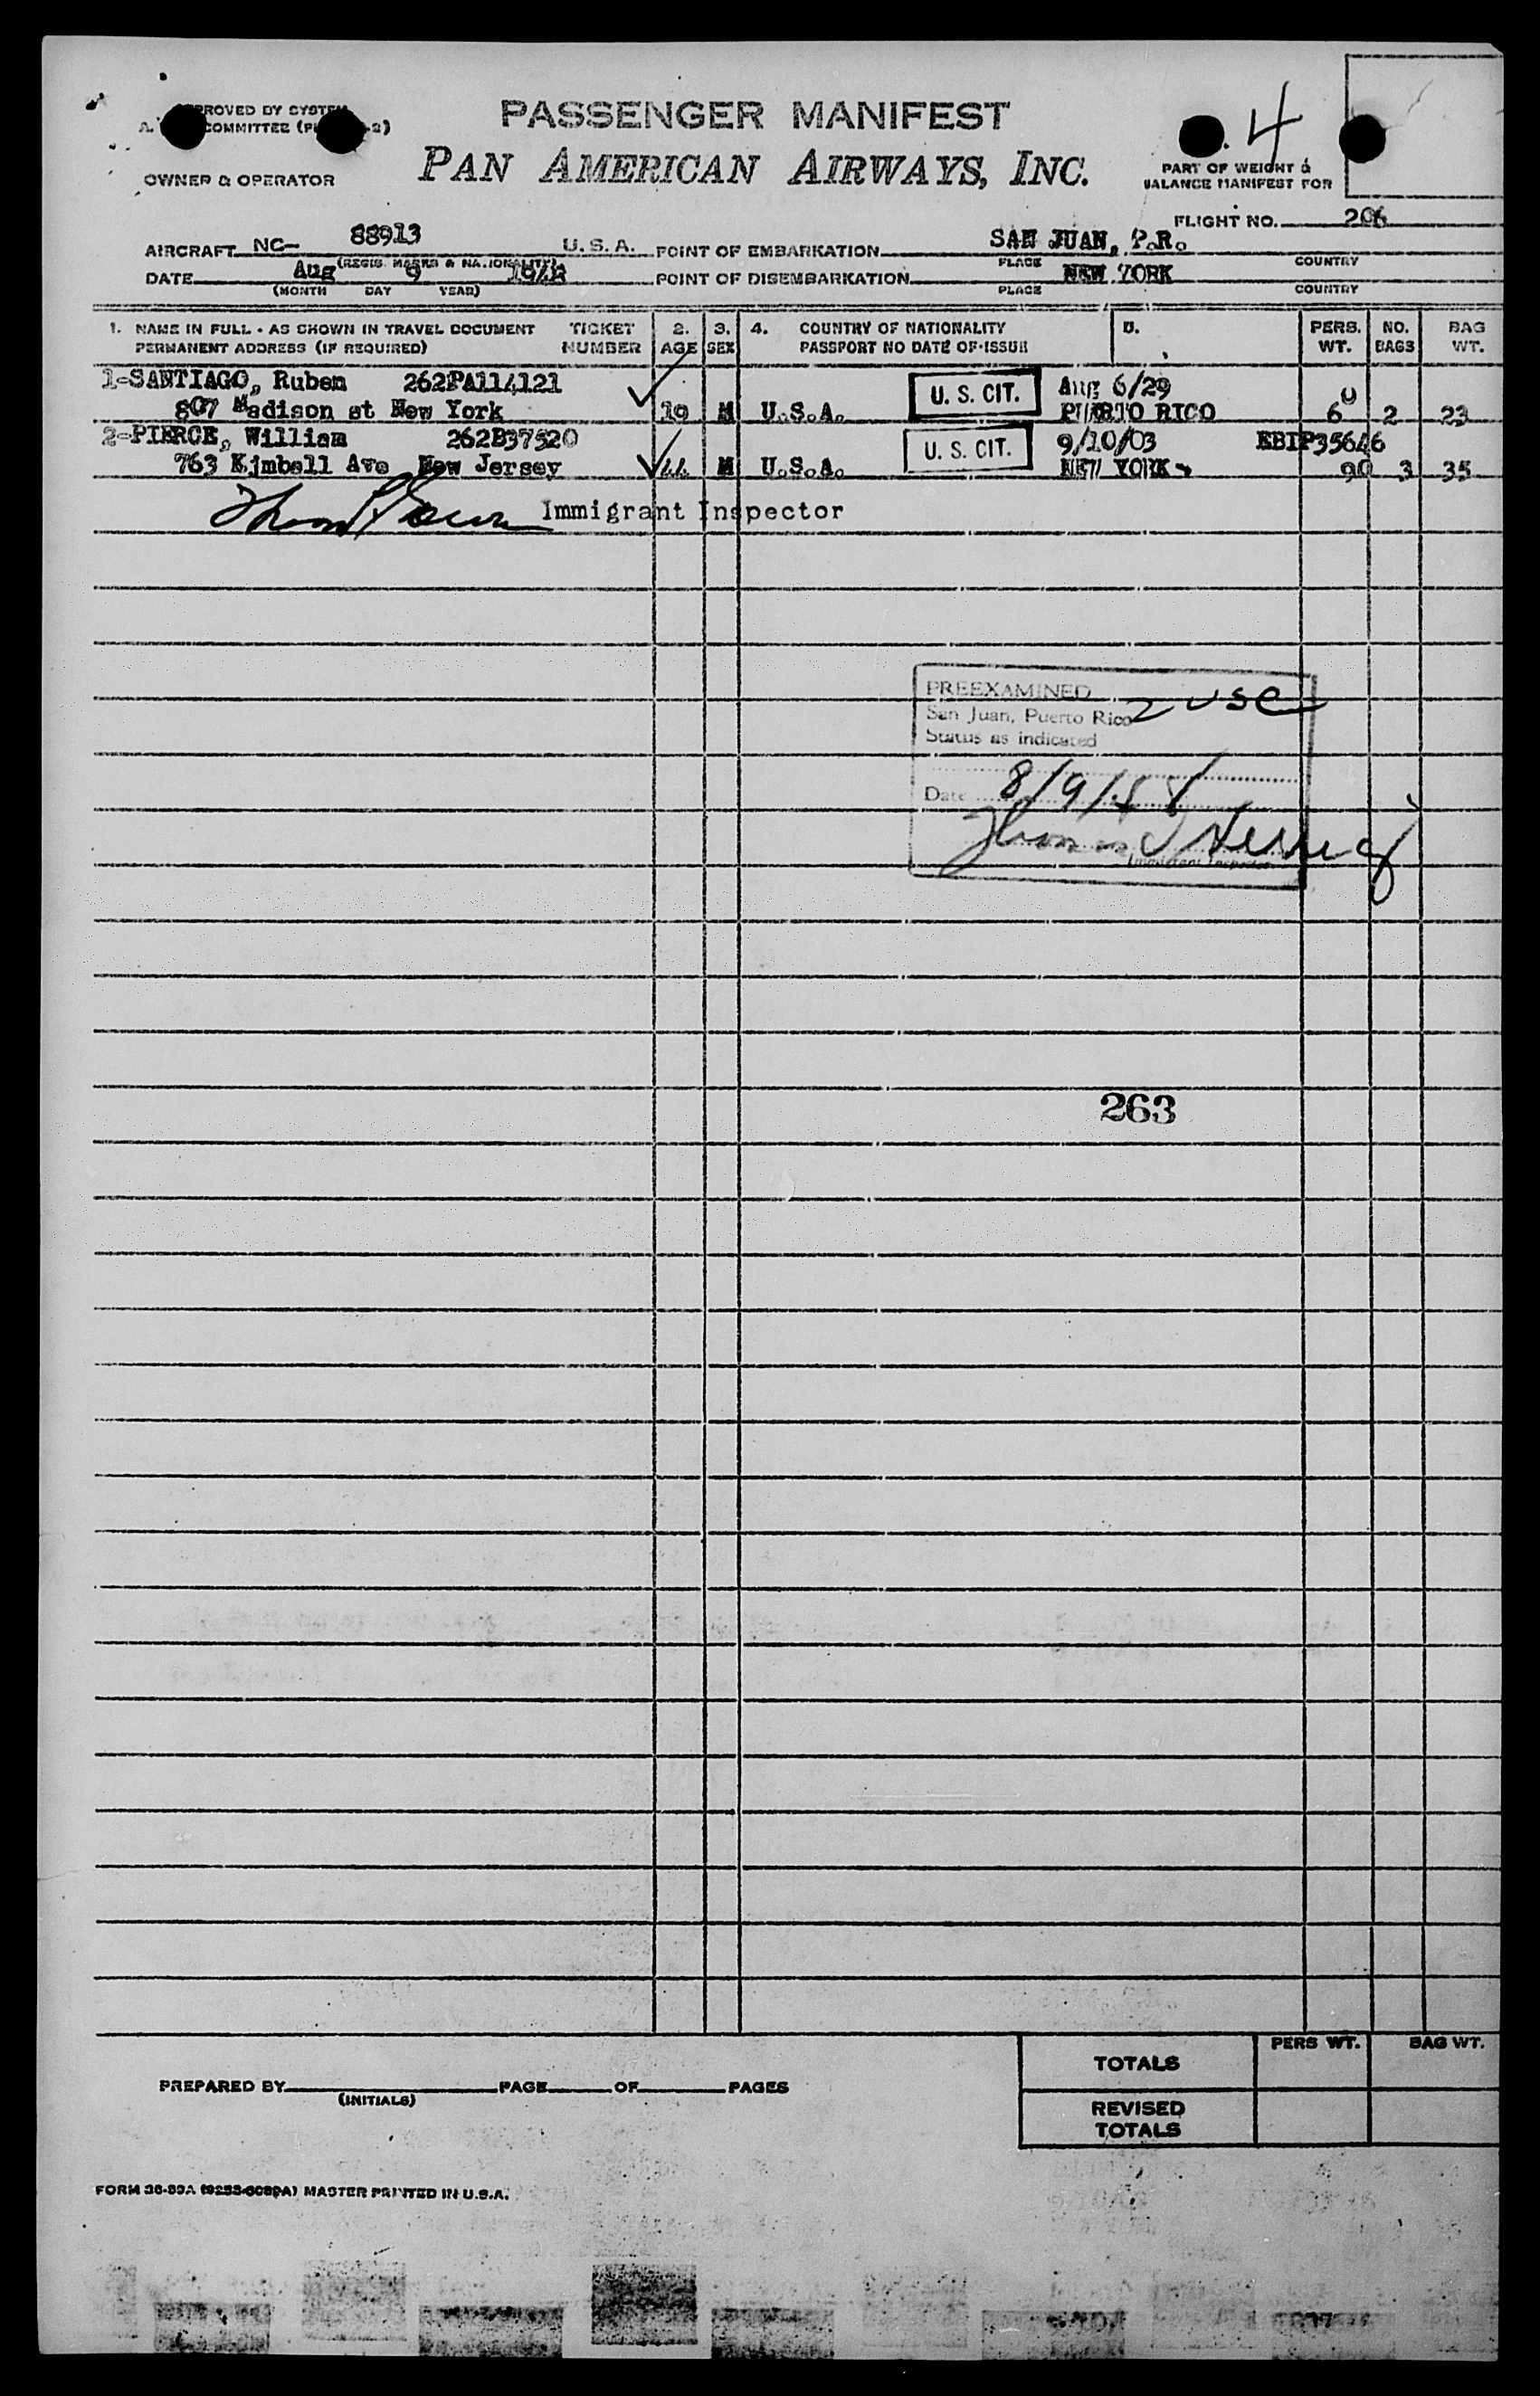 PROVED BY SYSTEM
COMMITTEE
OWNER & OPERATOR
PASSENGER MANIFEST
PAN AMERICAN AIRWAYS, INC.
4
PART OF WEIGHT &
BALANCE MANIFEST FOR
FLIGHT NO. 206
AIRCRAFT NC- 88913 U. S. A. POINT OF EMBARKATION SAN JUAN, P.R.
(REGIS. MARKS & NATIONALITY) PLACE COUNTRY
DATE Aug 9 1948 POINT OF DISEMBARKATION NEW YORK
(MONTH DAY YEAR) PLACE COUNTRY
1. NAME IN FULL - AS SHOWN IN TRAVEL DOCUMENT TICKET 2. 3. 4. COUNTRY OF NATIONALITY 5. PERS. NO. BAG
PERMANENT ADDRESS (IF REQUIRED) NUMBER AGE SEX PASSPORT NO DATE OF ISSUE WT. BAGS WT.
1-SANTIAGO, Ruben 262PA114121 U. S. CIT. Aug 6/29
807 Madison st New York 19 M U.S.A. PUERTO RICO 6 2 23
2-PIERCE, William 262B37520 U. S. CIT. 9/10/03 EBIP35646
763 Kimball Ave New Jersey 44 M U.S.A. NEW YORK 90 3 35
Immigrant Inspector
PREEXAMINED
San Juan, Puerto Rico 2 USC
Status as indicated
Date 8/9/48
Immigrant Inspector
263
PERS WT. BAG WT.
TOTALS
PREPARED BY PAGE OF PAGES
(INITIALS)
REVISED
TOTALS
MASTER PRINTED IN U.S.A.